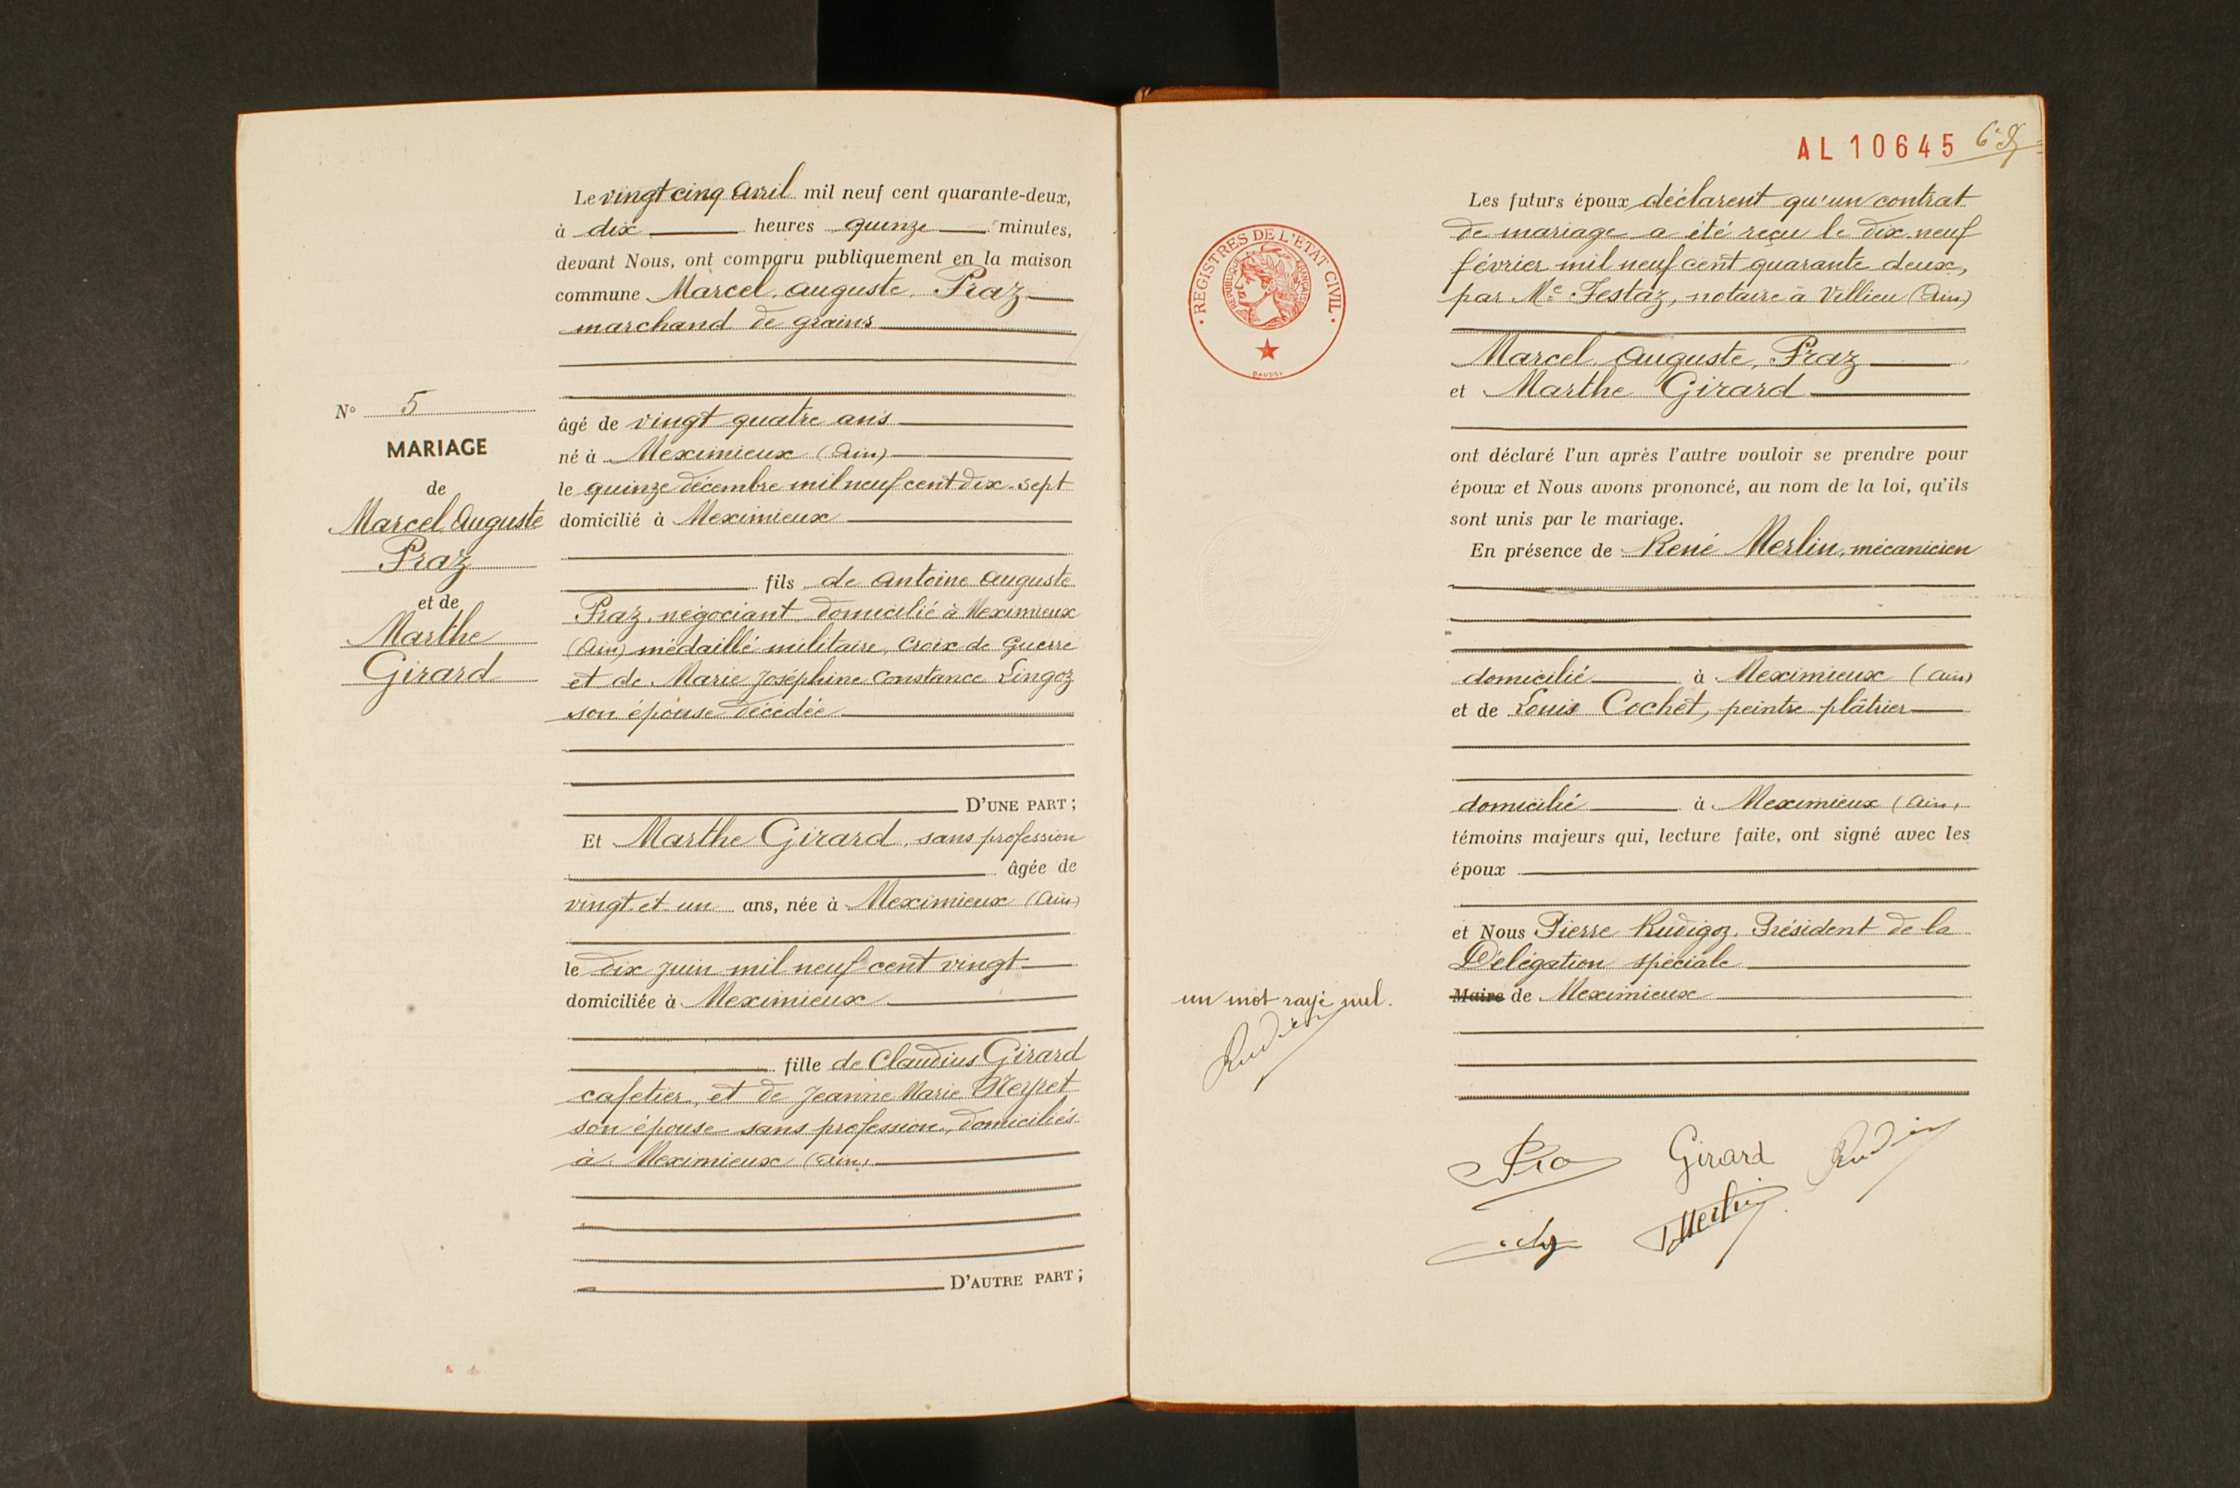 Le vingt cinq Avril mil neuf cent quarante-deux,
à dix heures quinze minutes,
devant Nous, ont comparu publiquement en la maison
commune Marcel, Auguste, Praz
marchand de grains
âgé de vingt quatre ans
né à Meximieux (Ain)
le quinze décembre mil neuf cent dix-sept
domicilié à Meximieux
fils de Antoine Auguste
Praz, négociant domicilié à Meximieux
(Ain) médaillé militaire, Croix de Guerre
et de Marie Joséphine Constance Lingoz
son épouse décédée
D'UNE PART ;
Et Marthe Girard, sans profession
âgée de
vingt et un ans, née à Meximieux (Ain)
le dix Juin mil neuf cent vingt
domiciliée à Meximieux
fille de Claudius Girard
cafetier, et de Jeanne Marie Neyret
son épouse sans profession, domiciliés
à Meximieux (Ain)
D'AUTRE PART ;
N° 5
MARIAGE
de
Marcel Auguste
Praz
et de
Marthe
Girard
AL 10645
REGISTRES DE L'ETAT CIVIL
REPUBLIQUE FRANÇAISE
Les futurs époux déclarent qu'un contrat
de mariage a été reçu le dix-neuf
février mil neuf cent quarante deux,
par Me Festaz, notaire à Villieu (Ain)
Marcel, Auguste, Praz
et Marthe Girard
ont déclaré l'un après l'autre vouloir se prendre pour
époux et Nous avons prononcé, au nom de la loi, qu'ils
sont unis par le mariage.
En présence de René Merlin, mécanicien
domicilié à Meximieux (Ain)
et de Louis Cochet, peintre plâtrier
domicilié à Meximieux (Ain)
témoins majeurs qui, lecture faite, ont signé avec les
époux
et Nous Pierre Rudigoz, Président de la
Délégation spéciale
Maire de Meximieux
un mot rayé nul.
Girard
Merlin